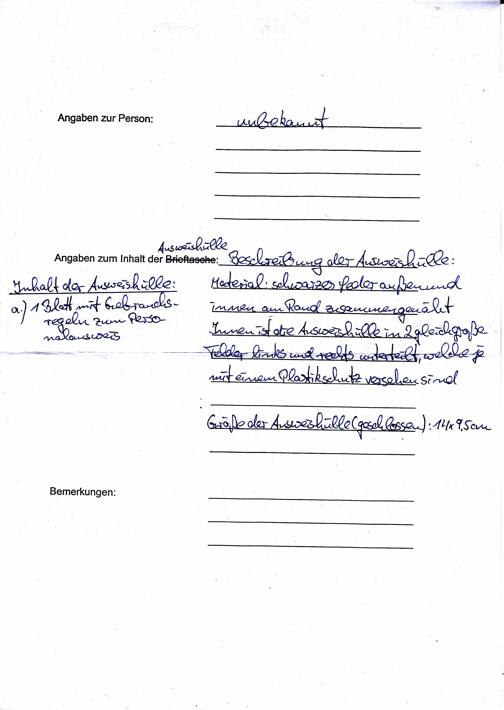 Angaben zur Person: unbekannt
Ausweishülle
Angaben zum Inhalt der Brieftasche: Beschreibung der Ausweishülle:
Inhalt der Ausweishülle:
a.) 1 Blatt mit Gebrauchs-
regeln zum Perso-
nalausweis
Material: schwarzes Leder außen und
innen am Rand zusammengenäht
Innen ist die Ausweishülle in 2 gleichgroße
Felder links und rechts unterteilt, welche je
mit einem Plastikschutz versehen sind
Größe der Ausweishülle (geschlossen): 14x9,5cm
Bemerkungen: